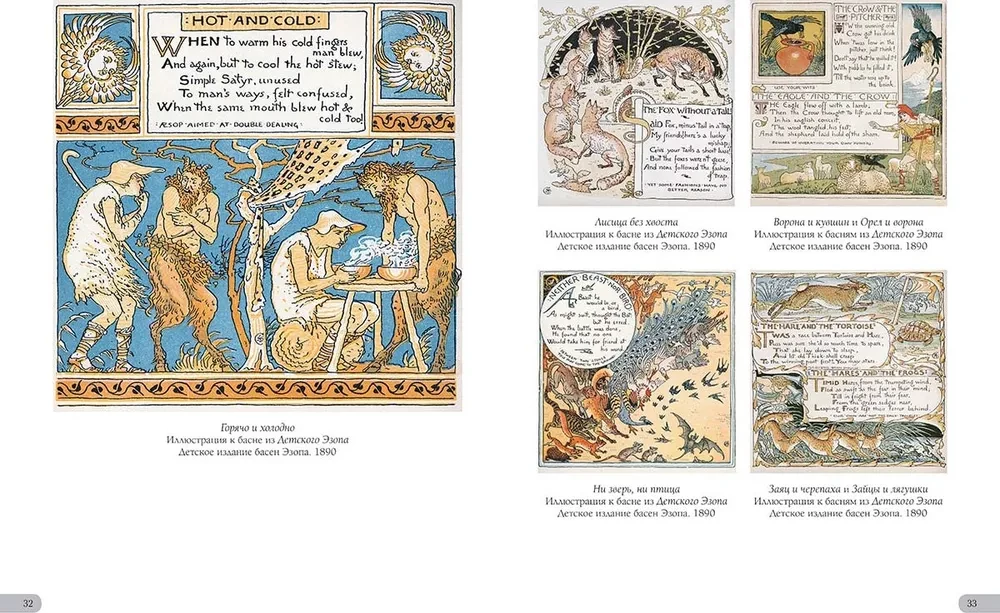 HOT AND COLD:
WHEN to warm his cold fingers
man blew,
And again, but to cool the hot stew;
Simple Satyr, unused
To man's ways, felt confused,
When the same mouth blew hot &
cold too!
ÆSOP AIMED AT DOUBLE DEALING
Горячо и холодно
Иллюстрация к басне из Детского Эзопа
Детское издание басен Эзопа. 1890
32
THE FOX WITHOUT A TAIL
SAID Fox, minus tail in a trap,
My friends! here's a lucky
mishap;
Give your tails a short lease!
But the foxes weren't geese,
And none followed the fashion
of trap.
YET SOME FASHIONS HAVE NO
BETTER REASON
Лисица без хвоста
Иллюстрация к басне из Детского Эзопа
Детское издание басен Эзопа. 1890
THE CROW & THE
PITCHER
the cunning old
Crow got his drink
When 'twas low in the
pitcher, just think!
Don't say that he spilled it!
With pebbles he filled it,
Till the water rose up to
the brink.
USE YOUR WITS
THE EAGLE AND THE CROW
THE Eagle flew off with a lamb;
Then the Crow thought to lift an old ram,
In his eaglish conceit,
The wool tangled his feet,
And the shepherd laid hold of the sham.
BEWARE OF OVERRATING YOUR OWN POWERS
Ворона и кувшин и Орел и ворона
Иллюстрация к басням из Детского Эзопа
Детское издание басен Эзопа. 1890
NEITHER BEAST NOR BIRD
A Beast he
would be, or
a bird,
As might suit, thought the Bat;
but he erred.
When the battle was done,
He found that no one
Would take him for friend at
his word.
Ни зверь, ни птица
Иллюстрация к басне из Детского Эзопа
Детское издание басен Эзопа. 1890
THE HARE AND THE TORTOISE
'TWAS a race between Tortoise and Hare,
Puss was sure she'd so much time to spare,
That she lay down to sleep,
And let old Thick-shell creep
To the winning post first! You may stare.
THE HARES AND THE FROGS
TIMID Hares, from the trumpeting wind,
Fled as swift as the fear in their mind;
Till in fright from their fear,
From the green sedges near,
Leaping Frogs left their terror behind.
Заяц и черепаха и Зайцы и лягушки
Иллюстрация к басням из Детского Эзопа
Детское издание басен Эзопа. 1890
33